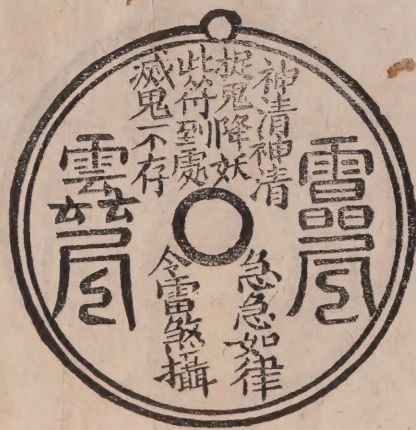 神清神清
捉鬼降妖
此符到處
滅鬼不存
急急如律
令雷煞攝